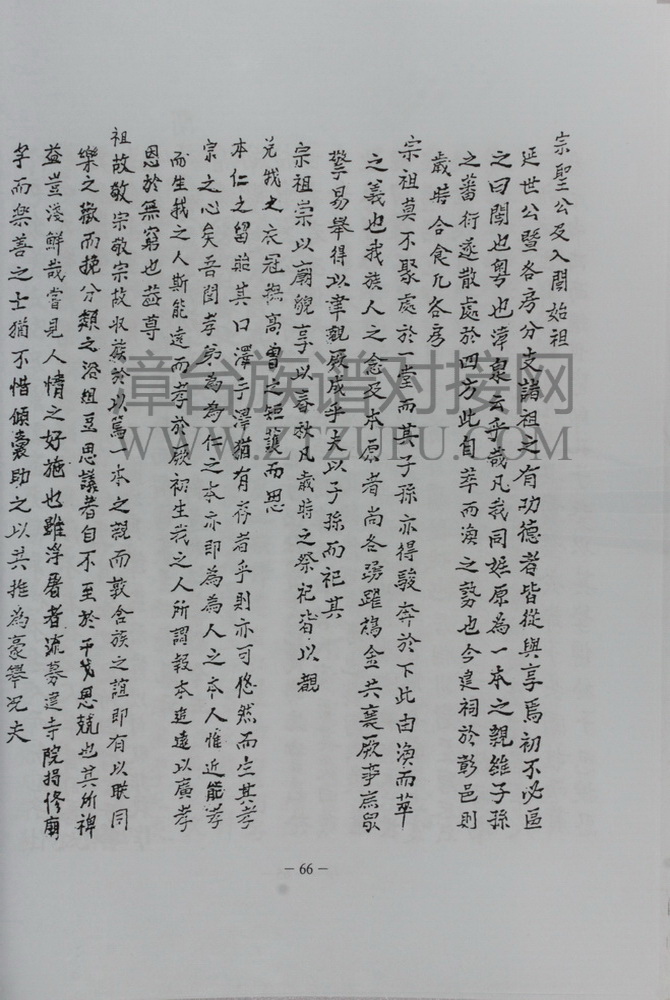 宗聖公及入閩始祖
延世公暨各房分支諸祖之有功德者皆從與享焉初不必區
之曰閩也粵也漳泉云乎哉凡我同姓原為一本之親雖子孫
之蕃衍遂散處於四方此自萃而渙之勢也今建祠於彰邑則
歲時合食凡各房
宗祖莫不聚處於一堂而其子孫亦得駿奔於下此由渙而萃
之義也我族人之念及本原者尚各踴躍鳩金共襄厥事庶眾
擎易舉得以聿觀厥成乎夫以子孫而祀其
宗祖崇以廟貌享以春秋凡歲時之祭祀皆以觀
兑我之衣冠撫高曾之矩護而思
本仁之留貽其口澤手澤猶有存者乎則亦可悠然而生其孝
宗之心矣吾聞孝弟為為仁之本亦即為為人之本人惟近能孝
而生我之人斯能遠而孝於厥初生我之人所謂報本追遠以廣孝
思於無窮也茲尊
祖故敬宗敬宗故收族於以篤一本之親而敦合族之誼即有以联同
樂之歡而挽分類之俗俎豆思議者自不至於干戈思競也其所裨
益豈淺鮮哉嘗見人情之好施也雖浮屠者流募建寺院捐修廟
宇而樂善之士猶不惜傾囊助之以共推為豪舉况夫
章台族谱对接网
WWW.ZTZUPU.COM
－66－